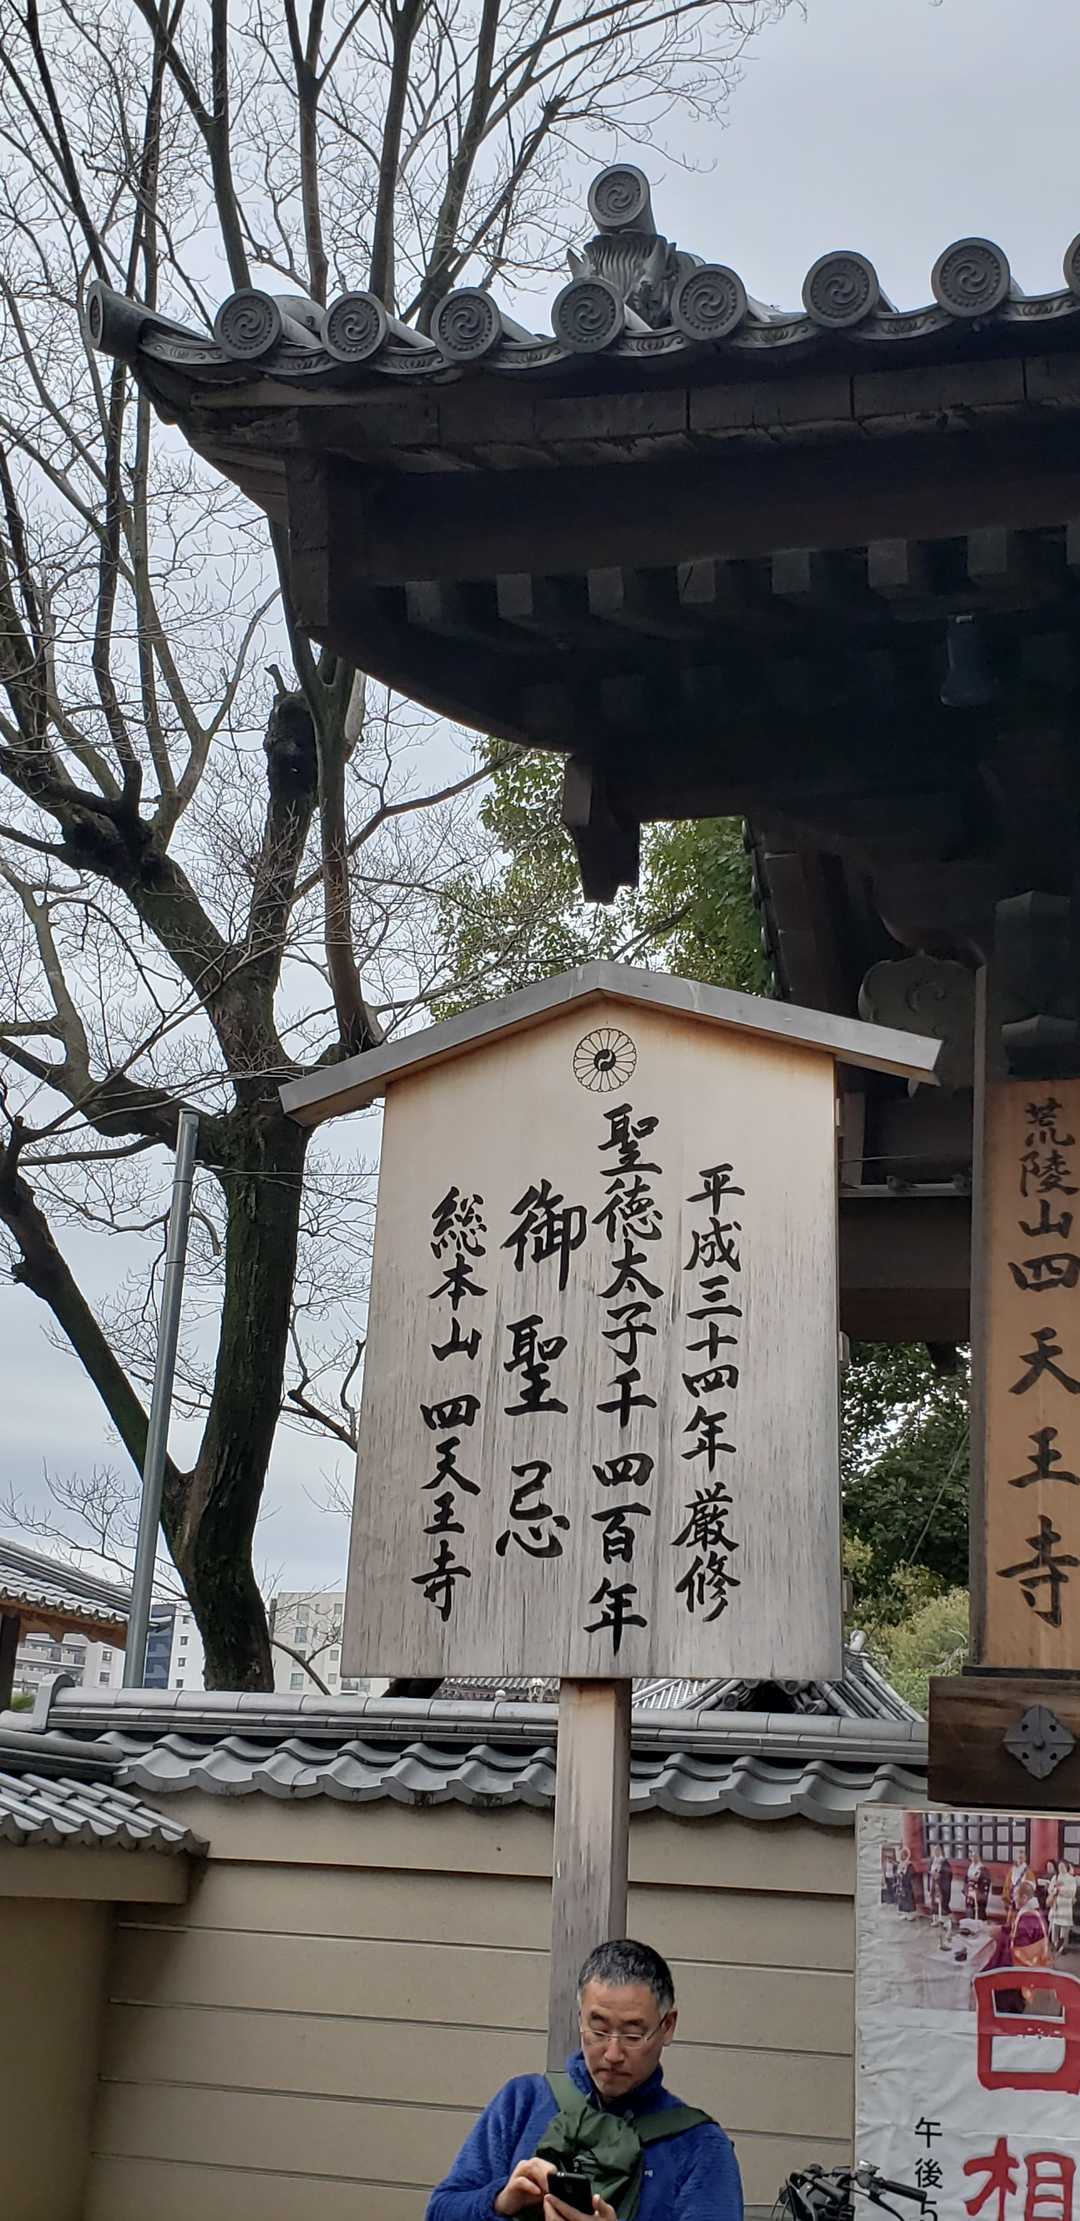 平成三十四年厳修
聖徳太子千四百年
御聖忌
総本山四天王寺
荒陵山四天王寺
日相
午後5